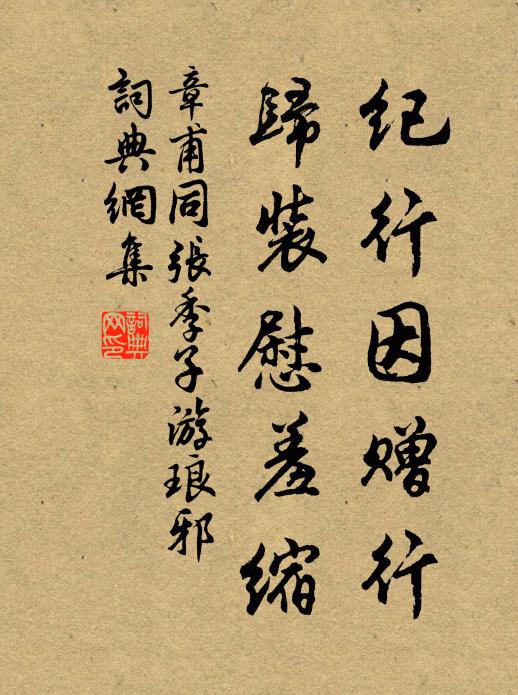 纪行因赠行
歸裝慰羞缩
章甫同張季子游琅邪
詞典網集
詞典網印